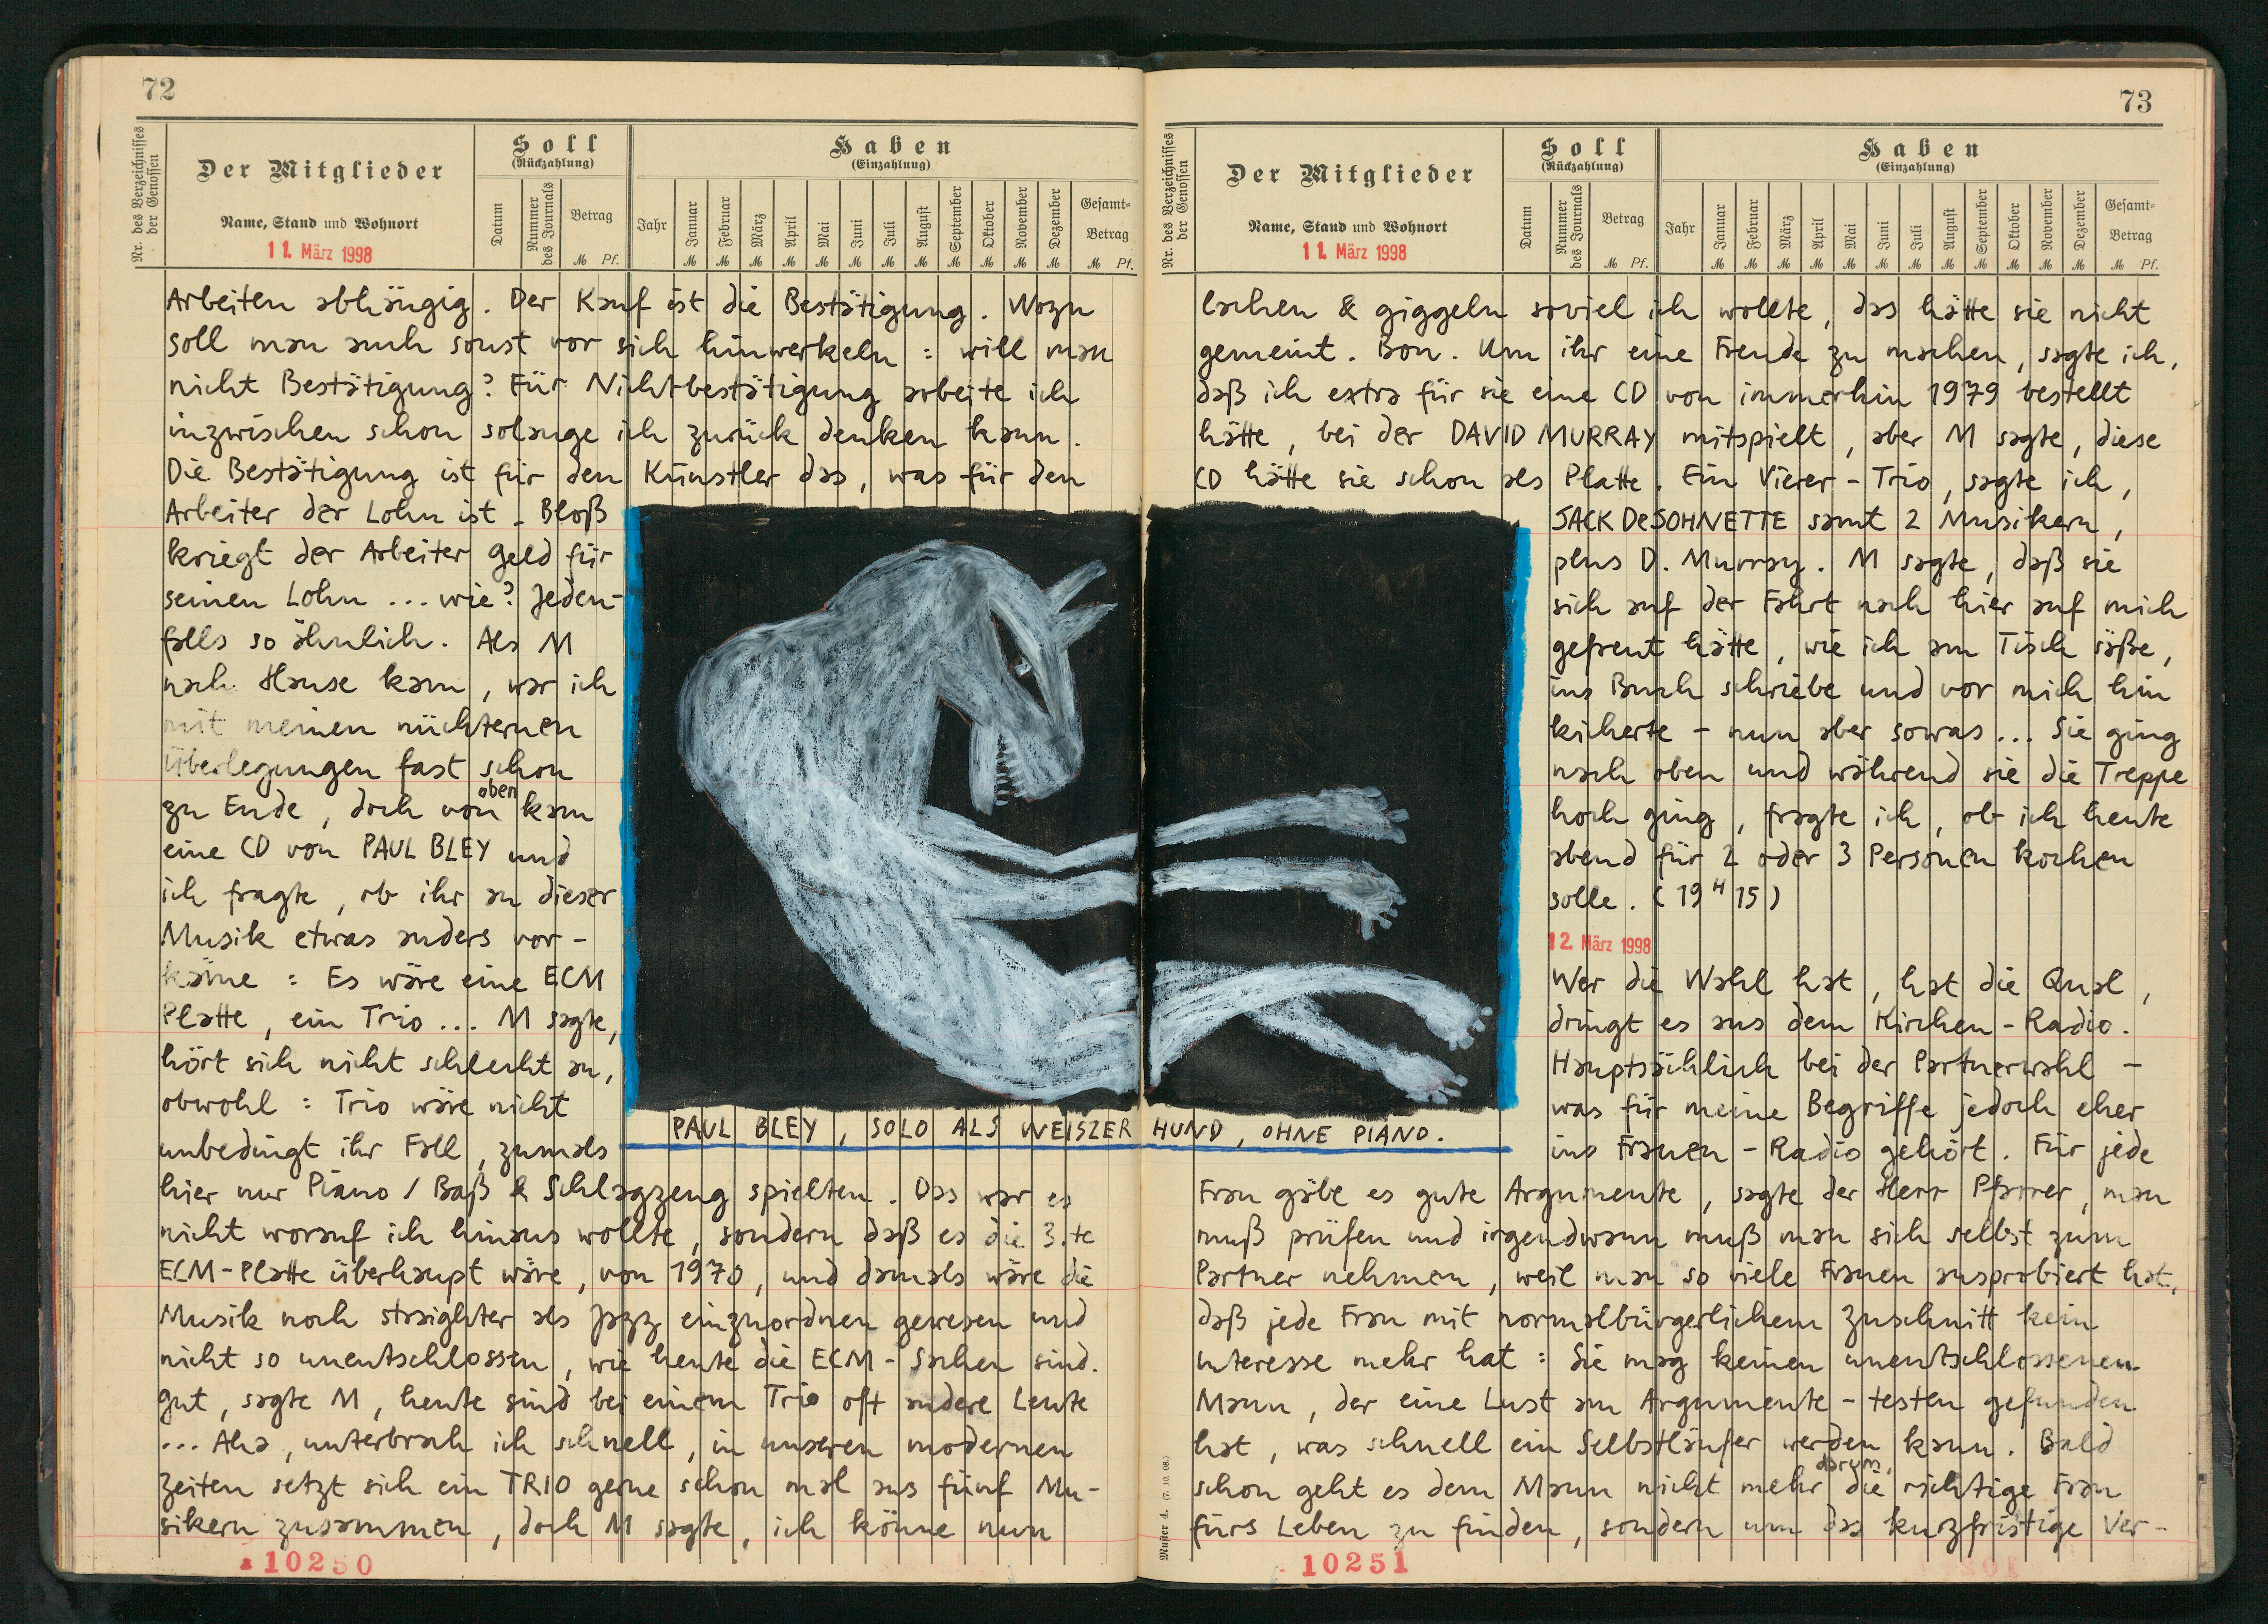 72
Nr. des Verzeichnisses der Genossen
Der Mitglieder
Name, Stand und Wohnort
11. März 1998
Soll
(Rückzahlung)
Datum
Nummer des Journals
Betrag
M Pf.
Haben
(Einzahlung)
Jahr
Januar
Februar
März
April
Mai
Juni
Juli
August
September
Oktober
November
Dezember
Gesamt-
Betrag
M M M M M M M M M M M M M Pf.
Arbeiten abhängig. Der Kauf ist die Bestätigung. Wozu
soll man auch sonst vor sich hinwerkeln : will man
nicht Bestätigung? Für Nichtbestätigung arbeite ich
inzwischen schon solange ich zurück denken kann.
Die Bestätigung ist für den Künstler das, was für den
Arbeiter der Lohn ist. Bloß
kriegt der Arbeiter Geld für
seinen Lohn ... wie? Jeden-
falls so ähnlich. Als M
nach Hause kam, war ich
mit meinen nüchternen
Überlegungen fast schon
zu Ende, doch von oben kam
eine CD von PAUL BLEY und
ich fragte, ob ihr an dieser
Musik etwas anders vor-
käme : Es wäre eine ECM
Platte, ein Trio ... M sagte,
hört sich nicht schlecht an,
obwohl : Trio wäre nicht
unbedingt ihr Fall, zumals
hier nur Piano / Baß & Schlagzeug spielten. Das war es
nicht worauf ich hinaus wollte, sondern daß es die 3.te
ECM-Platte überhaupt wäre, von 1970, und damals wäre die
Musik noch straighter als Jazz einzuordnen gewesen und
nicht so unentschlossen, wie heute die ECM-Sachen sind.
gut, sagte M, heute sind bei einem Trio oft andere Leute
... Aha, unterbrach ich schnell, in unseren modernen
Zeiten setzt sich ein TRIO gerne schon mal aus fünf Mu-
sikern zusammen, doch M sagte, ich könne nun
10250
PAUL BLEY, SOLO ALS WEISZER HUND, OHNE PIANO.
73
Nr. des Verzeichnisses der Genossen
Der Mitglieder
Name, Stand und Wohnort
11. März 1998
Soll
(Rückzahlung)
Datum
Nummer des Journals
Betrag
M Pf.
Haben
(Einzahlung)
Jahr
Januar
Februar
März
April
Mai
Juni
Juli
August
September
Oktober
November
Dezember
Gesamt-
Betrag
M M M M M M M M M M M M M Pf.
lachen & giggeln soviel ich wollte, das hätte sie nicht
gemeint. Bon. Um ihr eine Freude zu machen, sagte ich,
daß ich extra für sie eine CD von immerhin 1979 bestellt
hätte, bei der DAVID MURRAY mitspielt, aber M sagte, diese
CD hätte sie schon als Platte. Ein Vierer-Trio, sagte ich,
JACK DeJOHNETTE samt 2 Musikern,
plus D. Murray. M sagte, daß sie
sich auf der Fahrt nach hier auf mich
gefreut hätte, wie ich am Tisch säße,
ins Buch schriebe und vor mich hin
kicherte - nun aber sowas ... Sie ging
nach oben und während sie die Treppe
hoch ging, fragte ich, ob ich heute
abend für 2 oder 3 Personen kochen
solle. (19 H 15)
12. März 1998
Wer die Wahl hat, hat die Qual,
dringt es aus dem Kirchen-Radio.
Hauptsächlich bei der Partnerwahl -
was für meine Begriffe jedoch eher
ins Frauen-Radio gehört. Für jede
Frau gäbe es gute Argumente, sagte der Herr Pfarrer, man
muß prüfen und irgendwann muß man sich selbst zum
Partner nehmen, weil man so viele Frauen ausprobiert hat,
daß jede Frau mit normalbürgerlichem Zuschnitt kein
Interesse mehr hat : Sie mag keinen unentschlossenen
Mann, der eine Lust am Argumente-testen gefunden
hat, was schnell ein Selbstläufer werden kann. Bald
schon geht es dem Mann nicht mehr darum, die richtige Frau
fürs Leben zu finden, sondern um das kurzfristige Ver-
Muster 4. (7. 10. 08.)
10251